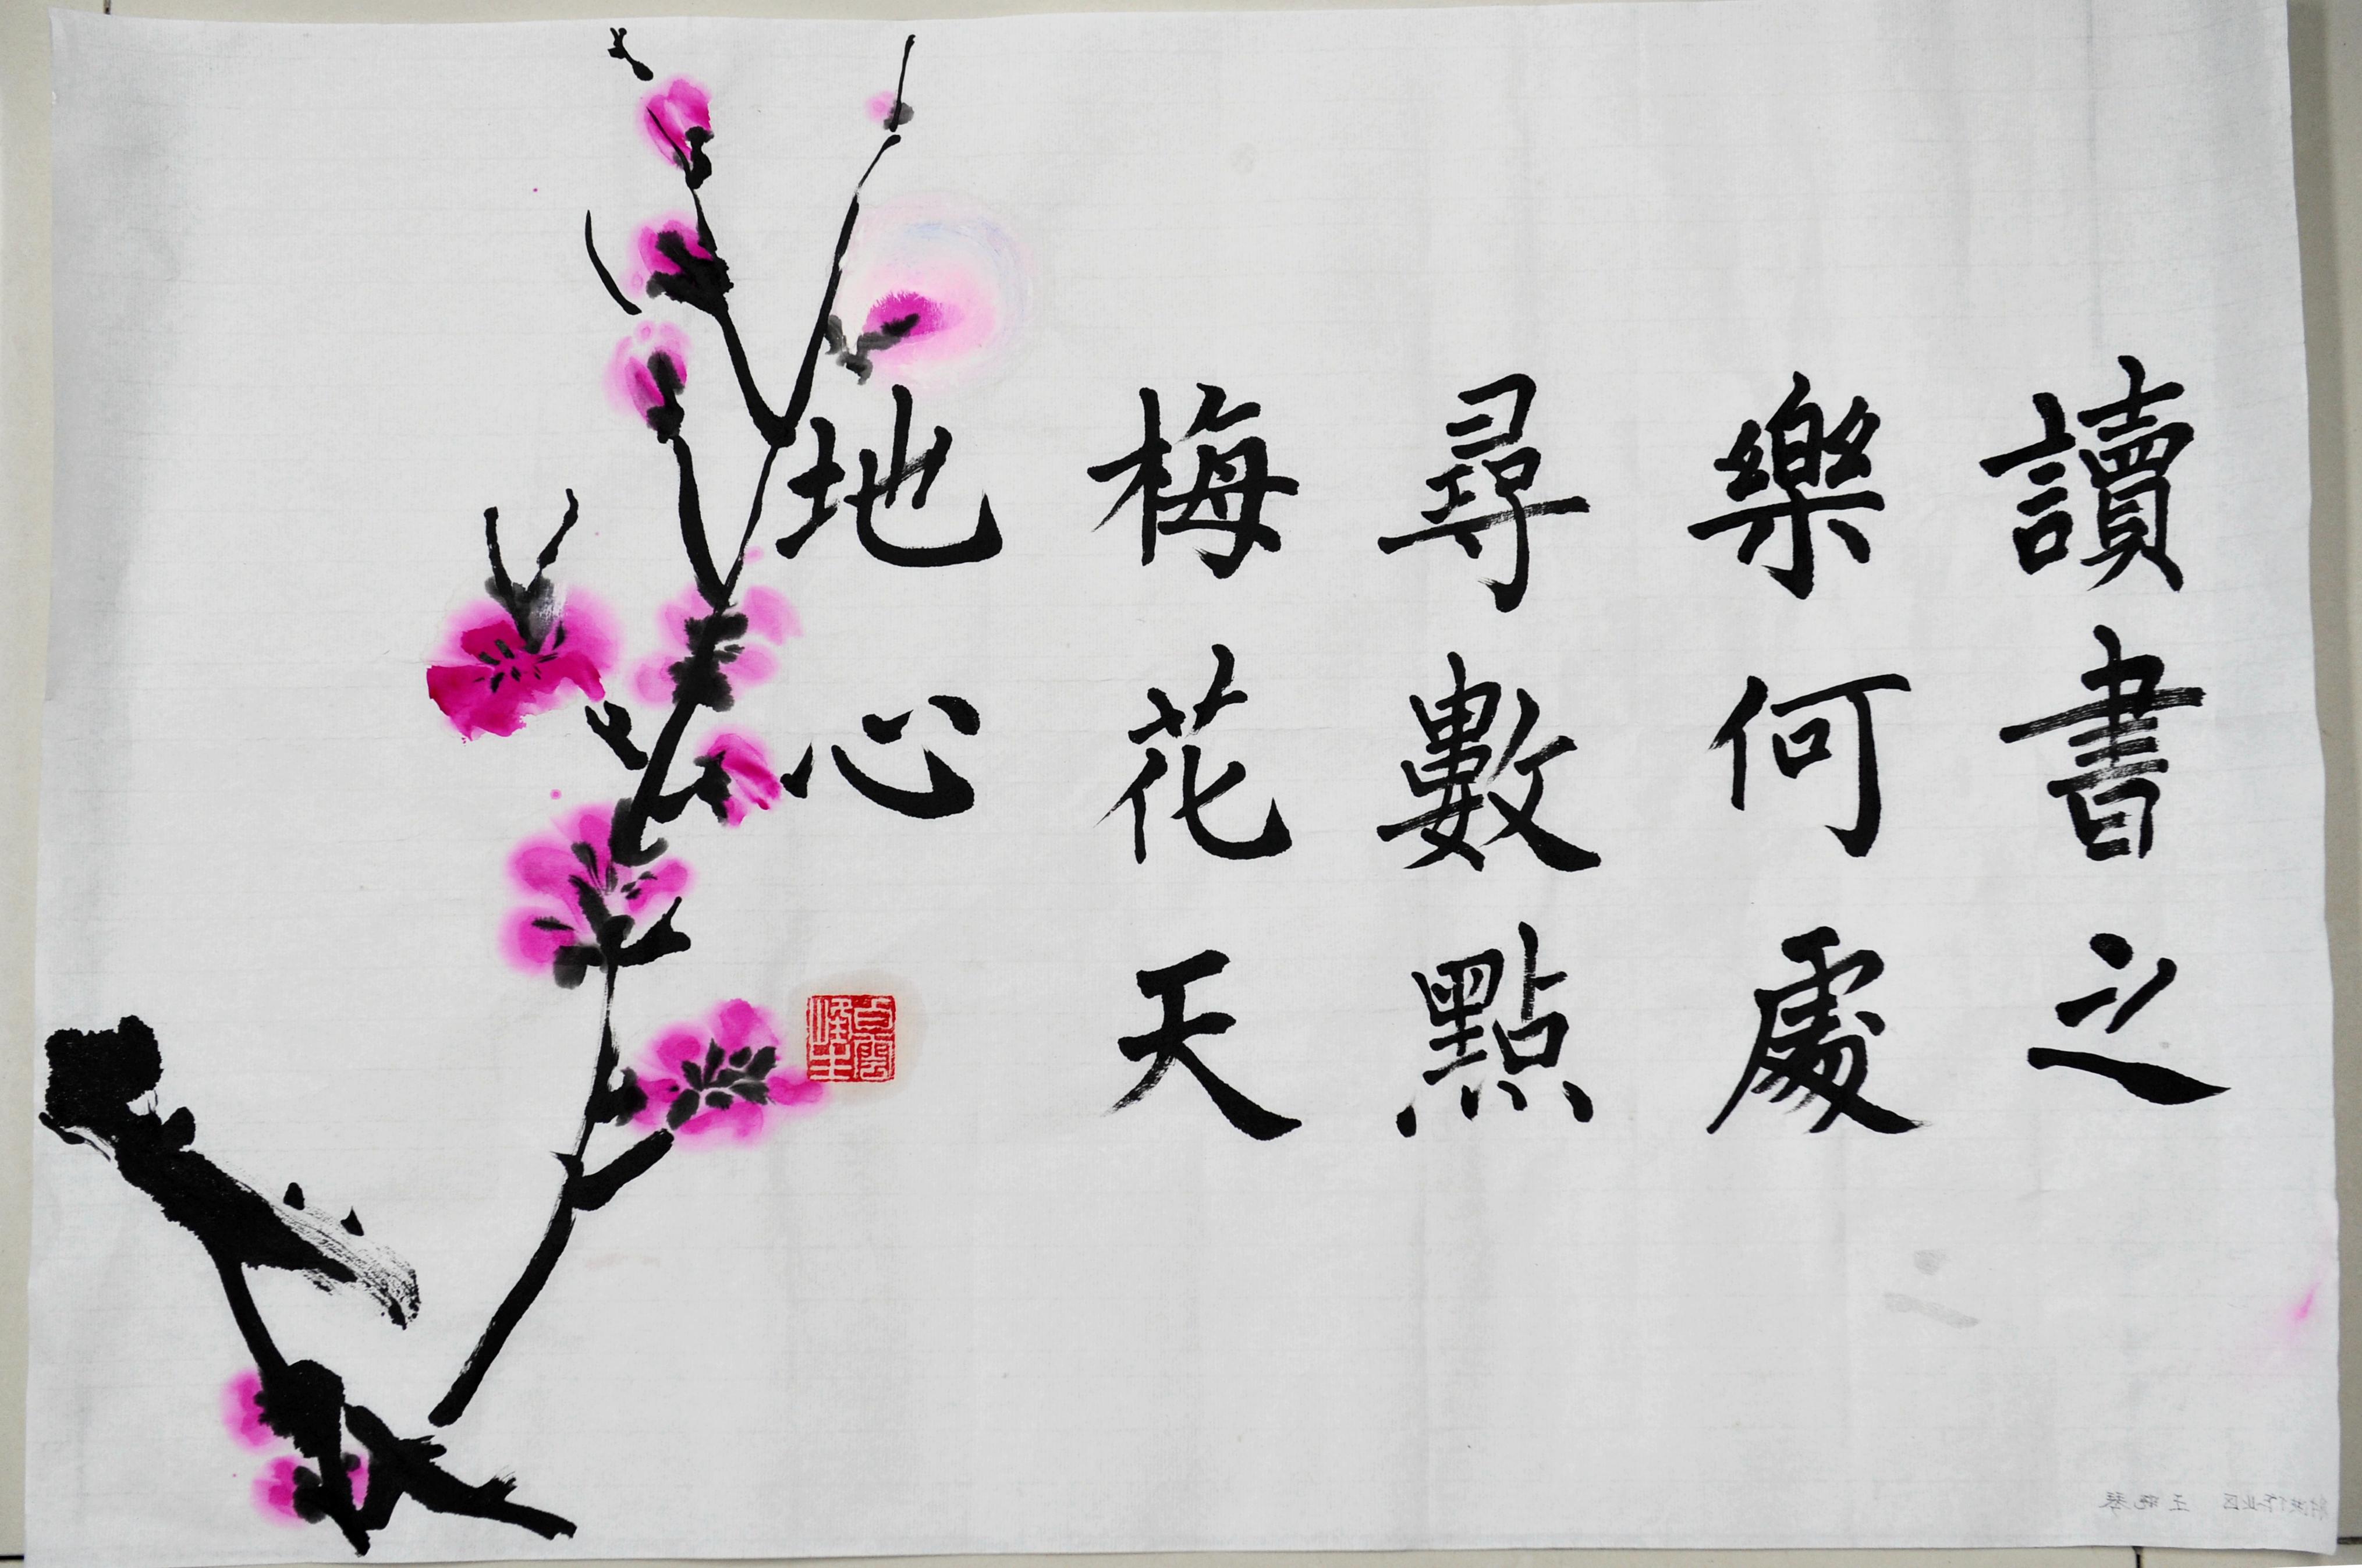 讀書之
樂何處
尋數點
梅花天
地心